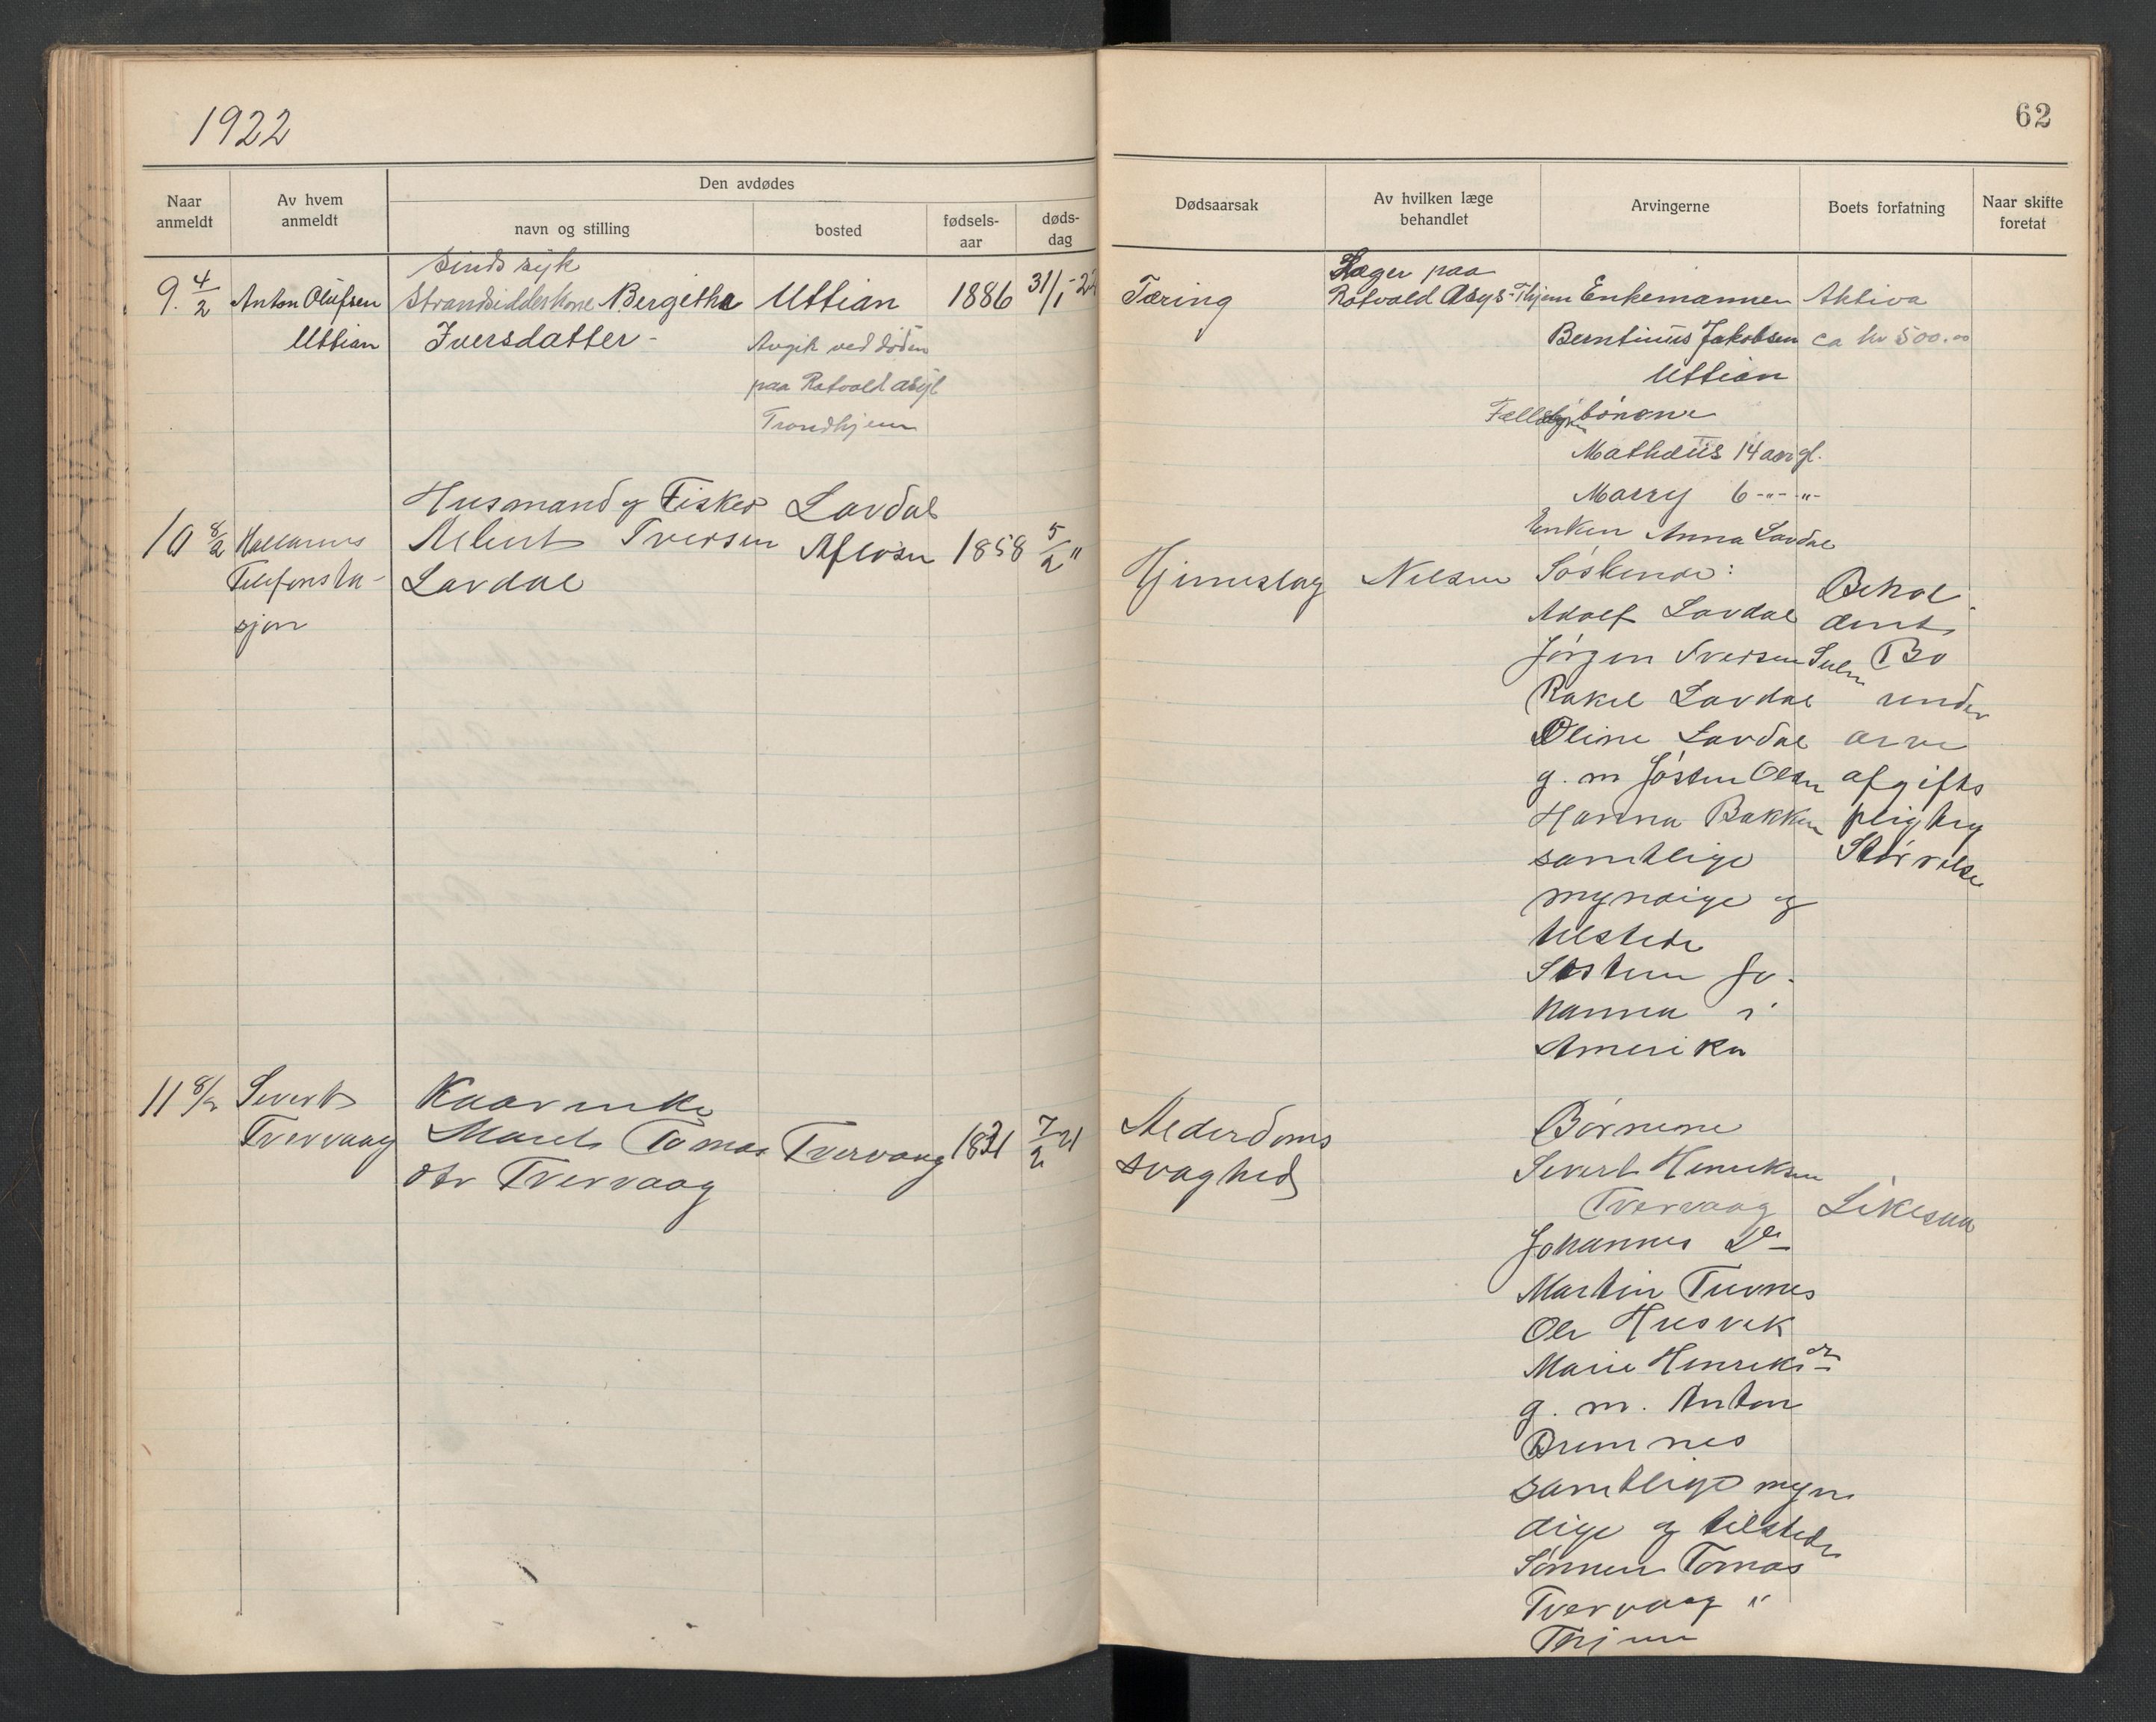 1922
62
Naar anmeldt
Av hvem anmeldt
Den avdødes
navn og stilling
bosted
fødsels-aar
døds-dag
Dødsaarsak
Av hvilken læge behandlet
Arvingerne
Boets forfatning
Naar skifte foretat
9. 4/2
Anton Olufsen
Uttian
Sindssyk
Strandsidderkone Bergitha
Iversdatter
Uttian
Avgik ved døden
paa Rotvold asyl
Trondhjem
1886
31/1-22
Tæring
Læger paa
Rotvold Asyl Thjem
Enkemannen
Berntinus Jakobsen
Uttian
Fællesbørnene
Mathæus 14 aar gl.
Marry 6 -"- -"-
Aktiva
ca kr 500.00
10 8/2
Hallarnes
Telefonsta-
sjon
Husmand og Fisker
Albert Iversen
Lavdal
Lavdal
1858
5/2 "
Hjerneslag
Nilsen
Enken Anna Lavdal
Søskende:
Adolf Lavdal
Jørgen Iversen
Rakel Lavdal
Oline Lavdal
g. m Jøsten Olsen
Hanna Bakken
samtlige
myndige og
tilstede
Søsteren Jo-
hanna i
Amerika
Behol-
dent
Bo
under
arve
afgifts
pligtig
Størrelse
11 8/2
Sivert
Tvervaag
Kaarenke
Maret Tomas
dtr Tvervaag
Tvervaag
7/2 21
Alderdoms
svaghed
Børnene
Sivert Henriksen
Tvervaag
Johannes Do
Martin Tuvnes
Ole Husvik
Marie Henriksdr
g. m. Anton
samtlige myn
dige og tilstede
Sønnen Tomas
Tvervaag "
Thjem
Likesaa